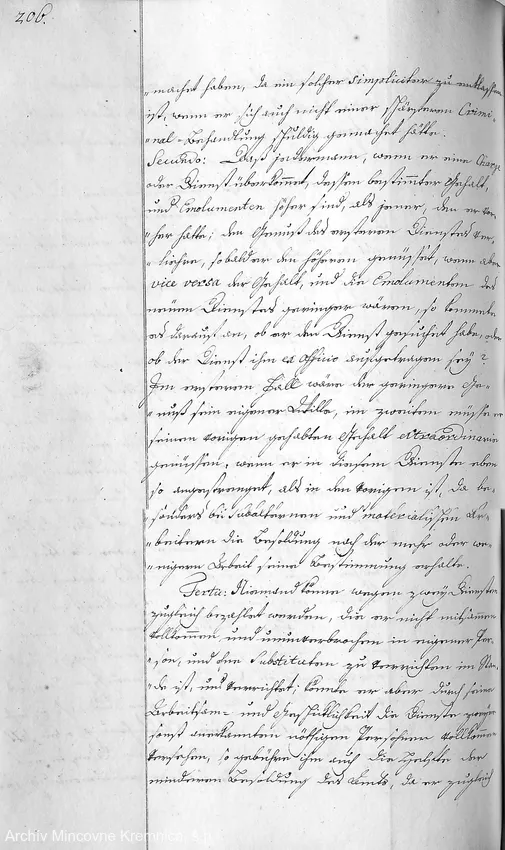 206.
machet haben, da ein solcher simpliciter zu entlassen
ist, wenn er sich auch nicht einer schärferen Crimi-
nal-Behandlung schuldig gemachet hätte.
Secundo: Daß jedermann, wenn er eine Charge
oder Dienst überkommet, dessen bestimmter Gehalt,
und Emolumenten höher sind, als jener, den er vor-
her hatte; den Genuß des ersteren Dienstes ver-
liehre, sobald er den höheren genüsset, wenn aber
vice versa der Gehalt, und die Emolumenten des
neuen Dienstes geringer wären, so kommete
es darauf an, ob er den Dienst gesuchet habe, oder
ob der Dienst ihm ex officio aufgetragen sey?
Im ersteren Fall wäre der geringere Ge-
nuß sein eigener Wille, im zweiten müsse er
seinen vorigen gehabten Gehalt extraordinarie
genüssen, wenn er in diesem Dienste eben
so angestrenget, als in dem vorigen ist, da be-
sonders bei subalternen und materialischen Ar-
beitern die Besoldung nach der mehr oder we-
nigern Arbeit seine Bestimmung erhalte.
Tertio: Niemand könne wegen zwey Diensten
zugleich bezahlet werden, die er nicht mitsammen
vollkommen, und ununterbrochen in eigener Per-
son, und ohne Substituten zu verrichten im Stan-
de ist, und verrichtet; könnte er aber durch seine
Arbeitsam- und Geschicklichkeit die Dienste zweyer
sonst anerkannten nöthigen Persohnen vollkommen
versehen, so gebühre ihm auch die Helfte der
minderen Besoldung des Amts, da er zugleich
Archív Mincovne Kremnica, š.p.